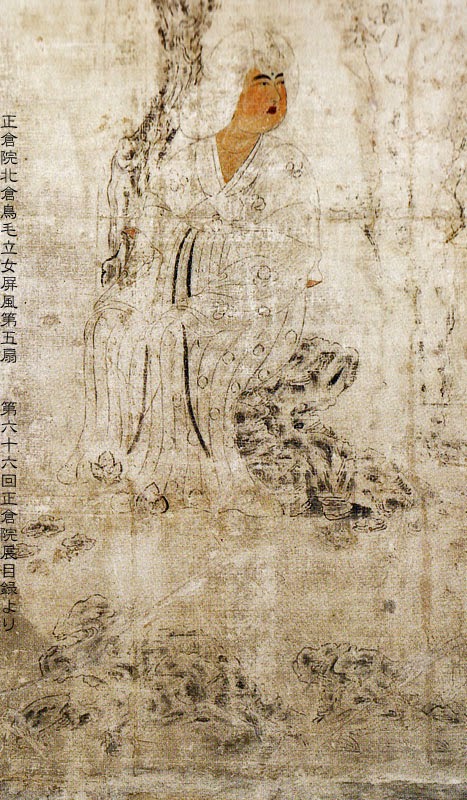 正倉院北倉鳥毛立女屏風第五扇　第六十六回正倉院展目録より